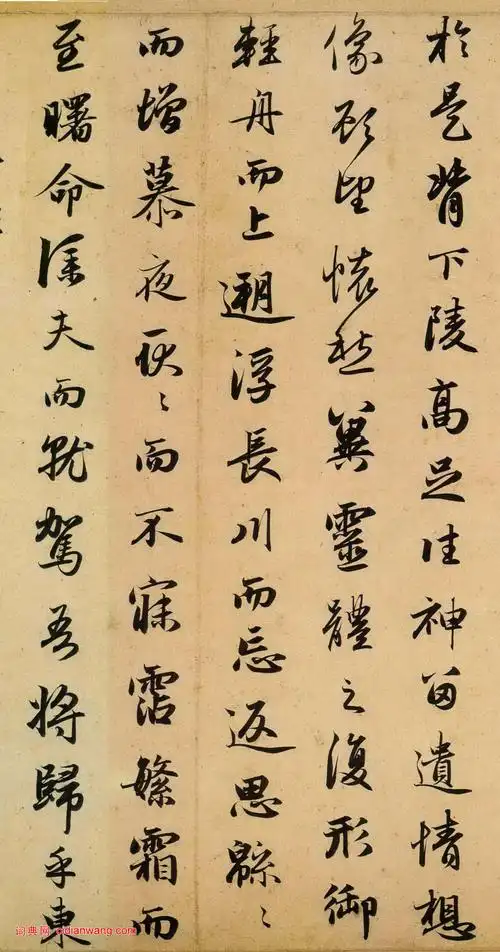 於是背下陵高足往神留遺情想
像顧望懷愁冀靈體之復形御
輕舟而上遡浮長川而忘返思緜〻
而增慕夜耿〻而不寐霑繁霜而
至曙命僕夫而就駕吾將歸乎東
词典网:cidianwang.com